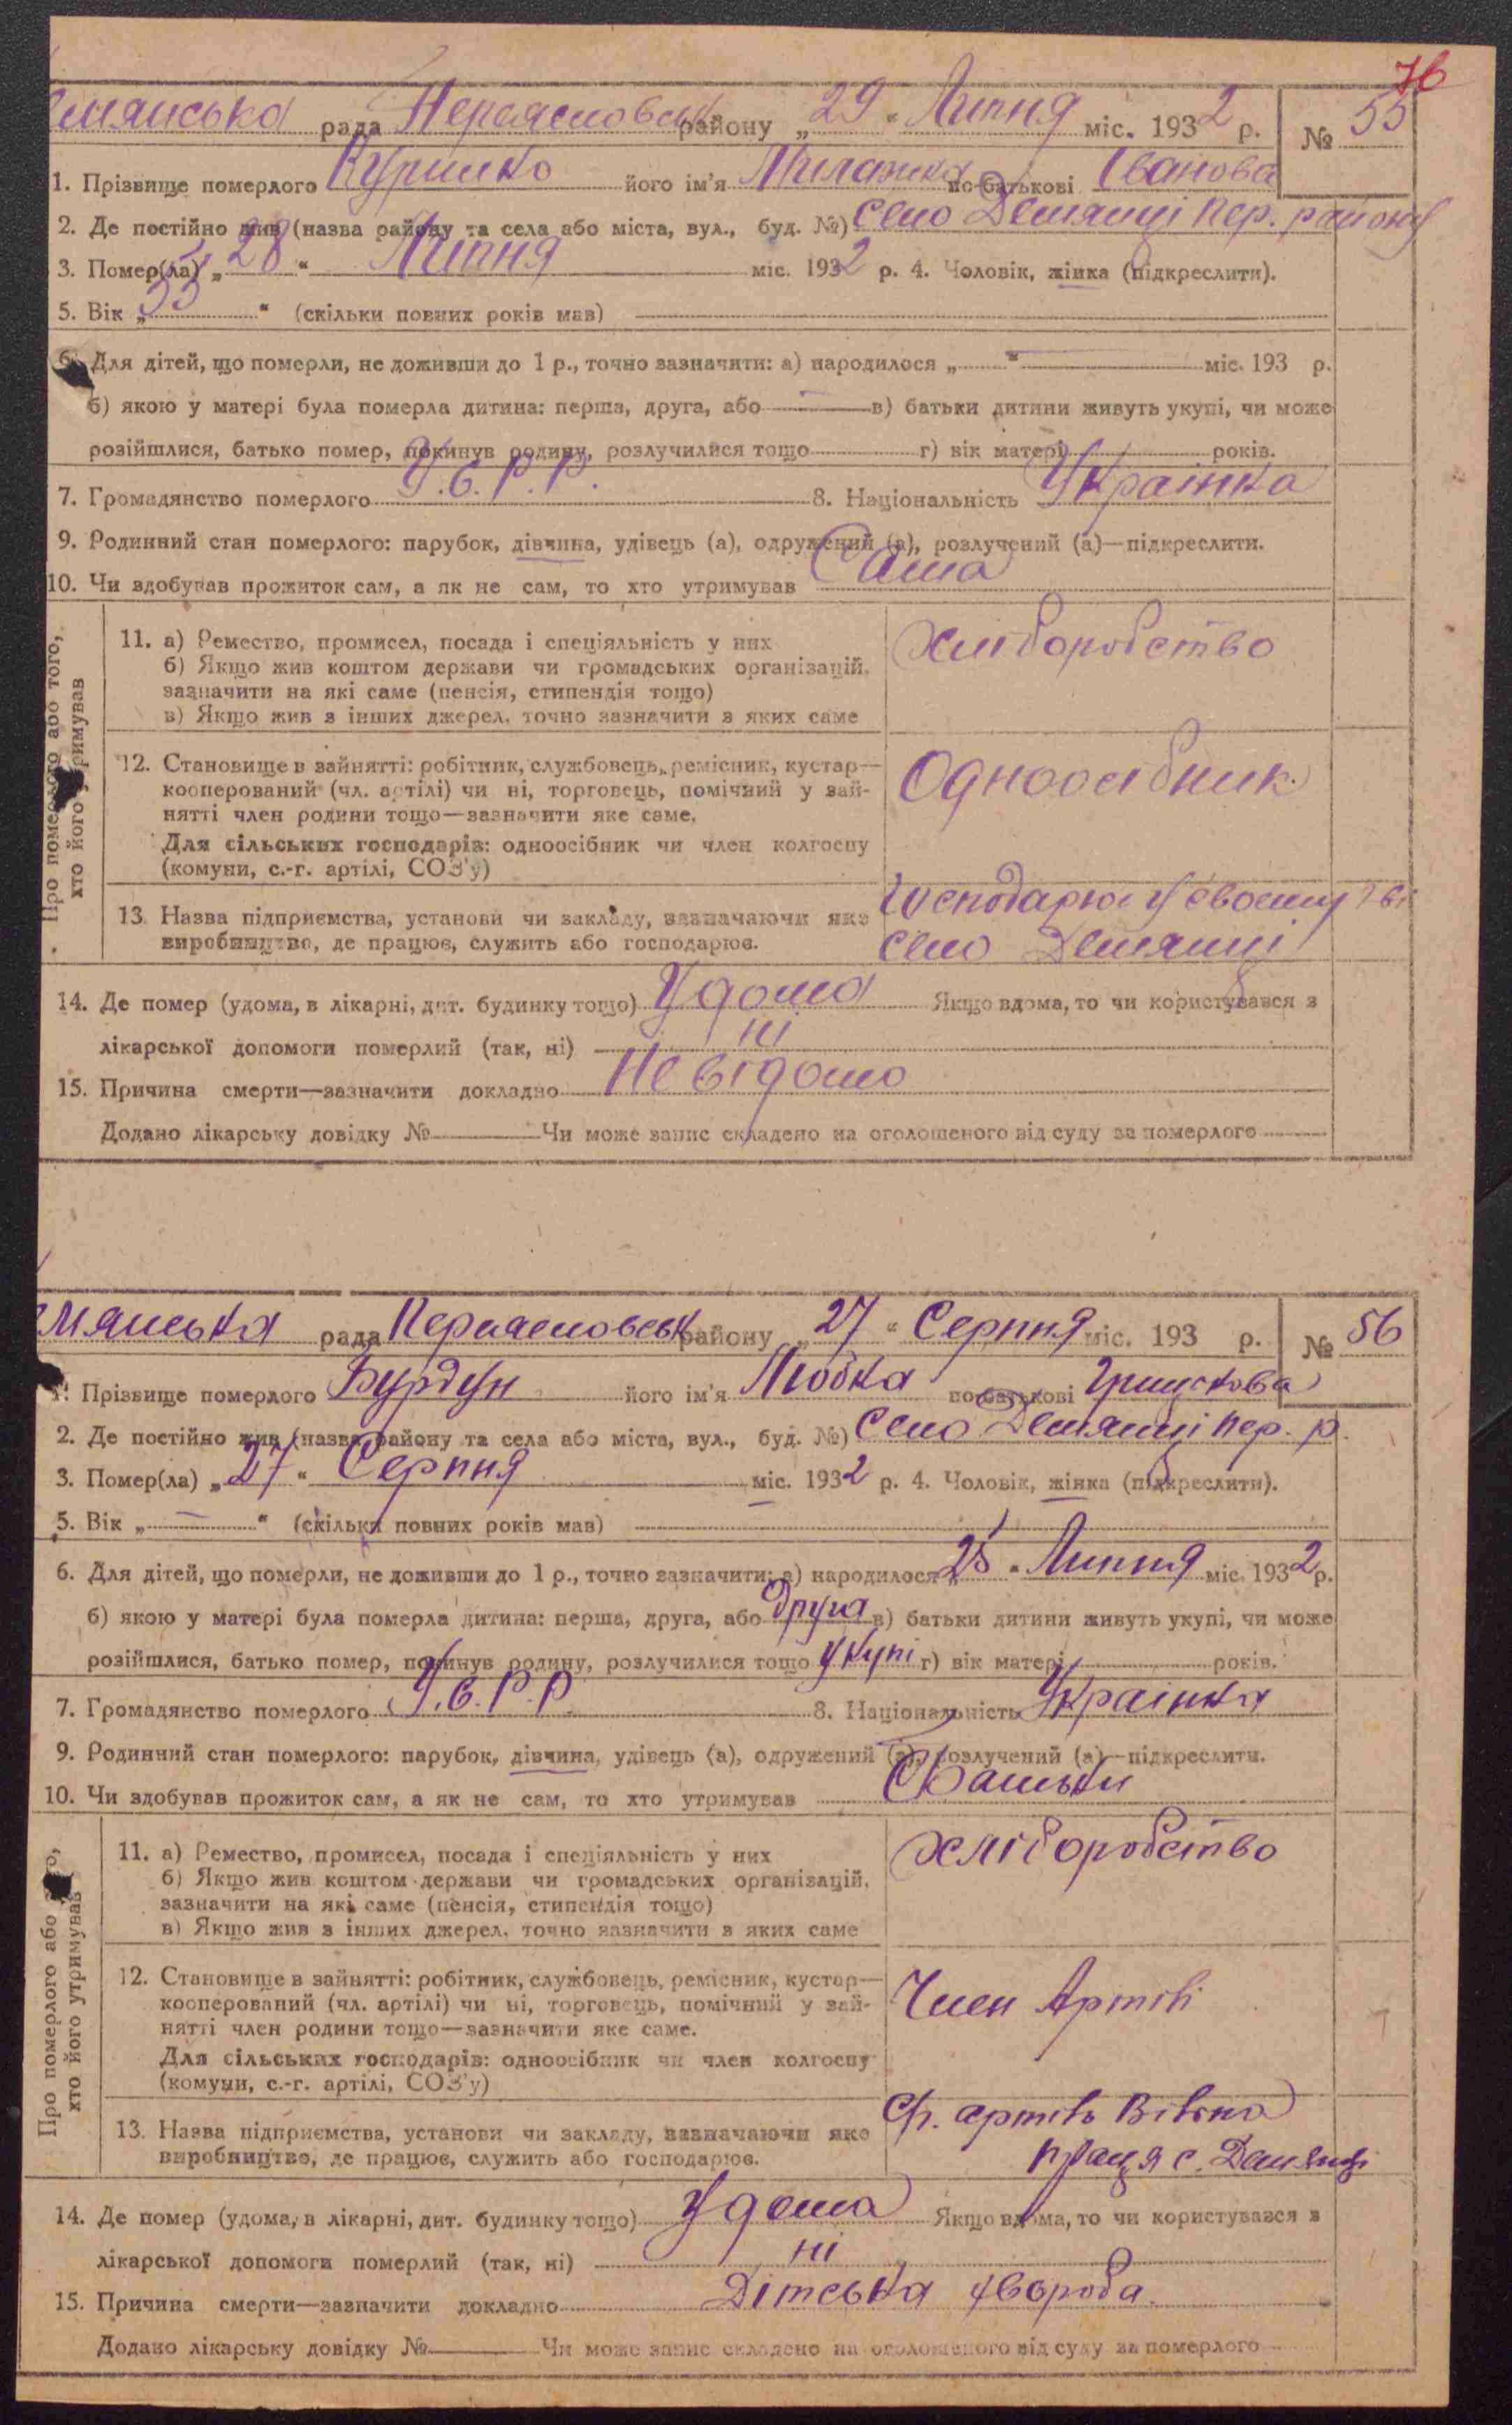 76
мянська рада Переяславськ району „29" Липня міс. 1932 р. № 55
1. Прізвище померлого Курилко його ім'я Миланка по-батькові Іванова
2. Де постійно жив (назва району та села або міста, вул., буд. №) село Демянці Пер. району
3. Помер(ла) „28" Липня міс. 1932 р. 4. Чоловік, жінка (підкреслити).
5. Вік „55" (скільки повних років мав)
6. Для дітей, що померли, не доживши до 1 р., точно зазначити: а) народилося „ " міс. 193 р.
б) якою у матері була померла дитина: перша, друга, або — в) батьки дитини живуть укупі, чи може
розійшлися, батько помер, покинув родину, розлучилися тощо г) вік матері років.
7. Громадянство померлого У.С.Р.Р. 8. Національність Українка
9. Родинний стан померлого: парубок, дівчина, удівець (а), одружений (а), розлучений (а)—підкреслити.
10. Чи здобував прожиток сам, а як не сам, то хто утримував Сама
Про померлого або того,
хто його утримував
11. а) Ремество, промисел, посада і спеціяльність у них
б) Якщо жив коштом держави чи громадських організацій,
зазначити на які саме (пенсія, стипендія тощо)
в) Якщо жив з інших джерел, точно зазначити з яких саме
Хліборобство
12. Становище в зайнятті: робітник, службовець, ремісник, кустар—
кооперований (чл. артілі) чи ні, торговець, помічний у зай-
нятті член родини тощо—зазначити яке саме.
Для сільських господарів: одноосібник чи член колгоспу
(комуни, с.-г. артілі, СОЗ'у)
Одноосібник
13. Назва підприємства, установи чи закладу, зазначаючи яке
виробництво, де працює, служить або господарює.
Господарює у своєму
село Демянці
14. Де помер (удома, в лікарні, дит. будинку тощо) Удома Якщо вдома, то чи користувався з
лікарської допомоги померлий (так, ні) ні
15. Причина смерти—зазначити докладно Невідомо
Додано лікарську довідку № Чи може запис складено на оголошеного від суду за померлого
мянська рада Переяславськ району „27" Серпня міс. 193 р. № 56
1. Прізвище померлого Бурдун його ім'я Любка по-батькові Грицькова
2. Де постійно жив (назва району та села або міста, вул., буд. №) Село Демянці Пер. р.
3. Помер(ла) „27" Серпня міс. 1932 р. 4. Чоловік, жінка (підкреслити).
5. Вік „—" (скільки повних років мав)
6. Для дітей, що померли, не доживши до 1 р., точно зазначити: а) народилося „25" Липня міс. 1932 р.
б) якою у матері була померла дитина: перша, друга, або друга в) батьки дитини живуть укупі, чи може
розійшлися, батько помер, покинув родину, розлучилися тощо укупі г) вік матері років.
7. Громадянство померлого У.С.Р.Р. 8. Національність Українка
9. Родинний стан померлого: парубок, дівчина, удівець (а), одружений (а), розлучений (а)—підкреслити.
10. Чи здобував прожиток сам, а як не сам, то хто утримував Батьки
Про померлого або того,
хто його утримував
11. а) Ремество, промисел, посада і спеціяльність у них
б) Якщо жив коштом держави чи громадських організацій,
зазначити на які саме (пенсія, стипендія тощо)
в) Якщо жив з інших джерел, точно зазначити з яких саме
Хліборобство
12. Становище в зайнятті: робітник, службовець, ремісник, кустар—
кооперований (чл. артілі) чи ні, торговець, помічний у зай-
нятті член родини тощо—зазначити яке саме.
Для сільських господарів: одноосібник чи член колгоспу
(комуни, с.-г. артілі, СОЗ'у)
Член Артілі
13. Назва підприємства, установи чи закладу, зазначаючи яке
виробництво, де працює, служить або господарює.
артіль Вільна
праця с. Демянці
14. Де помер (удома, в лікарні, дит. будинку тощо) Удома Якщо вдома, то чи користувався з
лікарської допомоги померлий (так, ні) ні
15. Причина смерти—зазначити докладно Дітська хвороба
Додано лікарську довідку № Чи може запис складено на оголошеного від суду за померлого